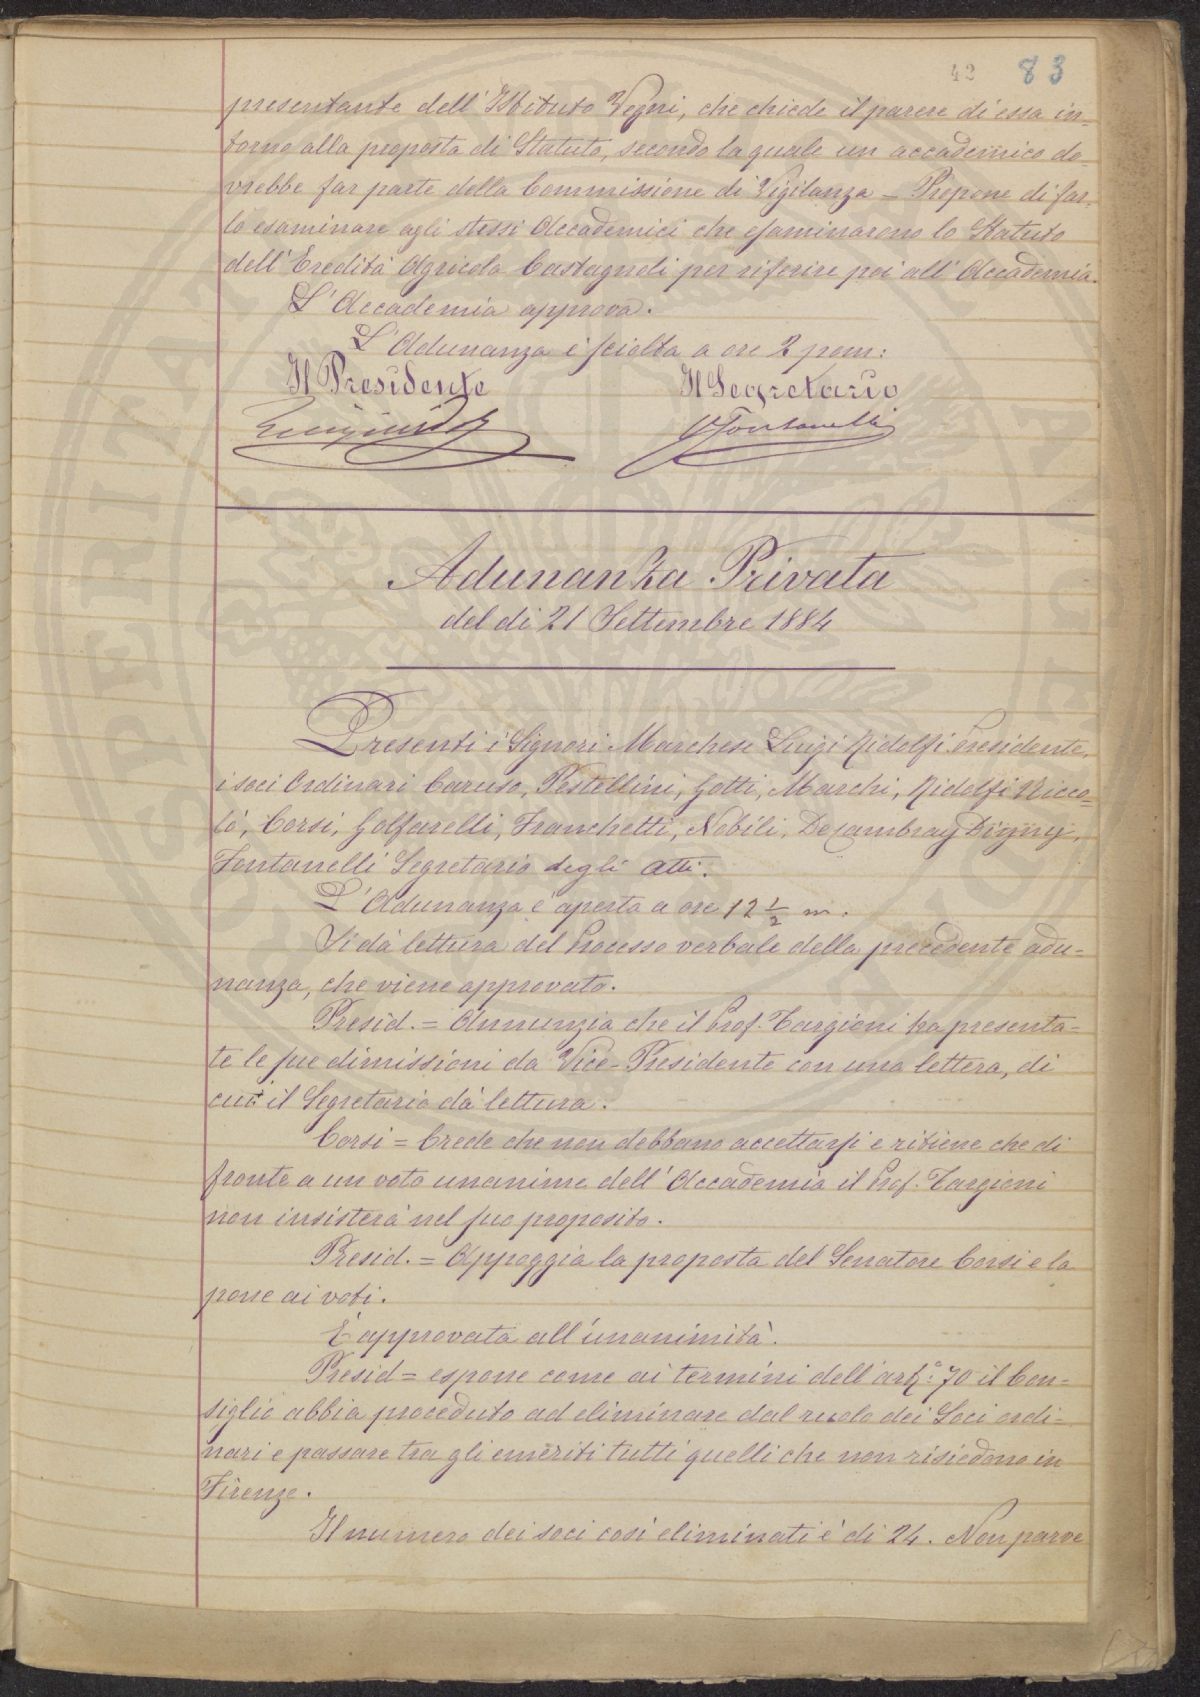 42 83
presentante dell'Istituto Vegni, che chiede il parere di essa in-
torno alla proposta di Statuto, secondo la quale un accademico do-
vrebbe far parte della Commissione di Vigilanza - Propone di far-
lo esaminare agli stessi Accademici che esaminarono lo Statuto
dell'Eredità Agricola Castagnoli per riferire poi all'Accademia.
L'Accademia approva.
L'Adunanza è sciolta a ore 2 pom:
Il Presidente Il Segretario
Luigi Ridolfi VFontanelli
Adunanza Privata
del di 21 Settembre 1884
Presenti i Signori Marchese Luigi Ridolfi Presidente,
i soci Ordinari Caruso, Pestellini, Gotti, Marchi, Ridolfi Nicco-
lò, Corsi, Golfarelli, Franchetti, Nobili, De Cambray Digny,
Fontanelli Segretario degli Atti.
L'Adunanza è aperta a ore 12 1/2 m.
Si dà lettura del Processo verbale della precedente adu-
nanza, che viene approvato.
Presid. = Annunzia che il Prof. Targioni ha presenta-
te le sue dimissioni da Vice-Presidente con una lettera, di
cui il Segretario dà lettura.
Corsi = Crede che non debbano accettarsi e ritiene che di
fronte a un voto unanime dell'Accademia il Prof. Targioni
non insisterà nel suo proposito.
Presid. = Appoggia la proposta del Senatore Corsi e la
pone ai voti.
È approvata all'unanimità.
Presid = espone come ai termini dell'art.° 70 il Con-
siglio abbia proceduto ad eliminare dal ruolo dei Soci ordi-
nari e passare tra gli emeriti tutti quelli che non risiedono in
Firenze.
Il numero dei soci così eliminati è di 24. Non parve